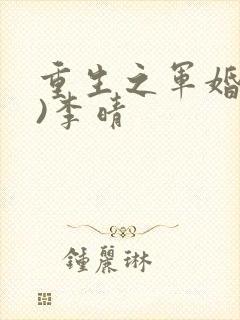 重生之军婚
)李晴
鍾麗琳